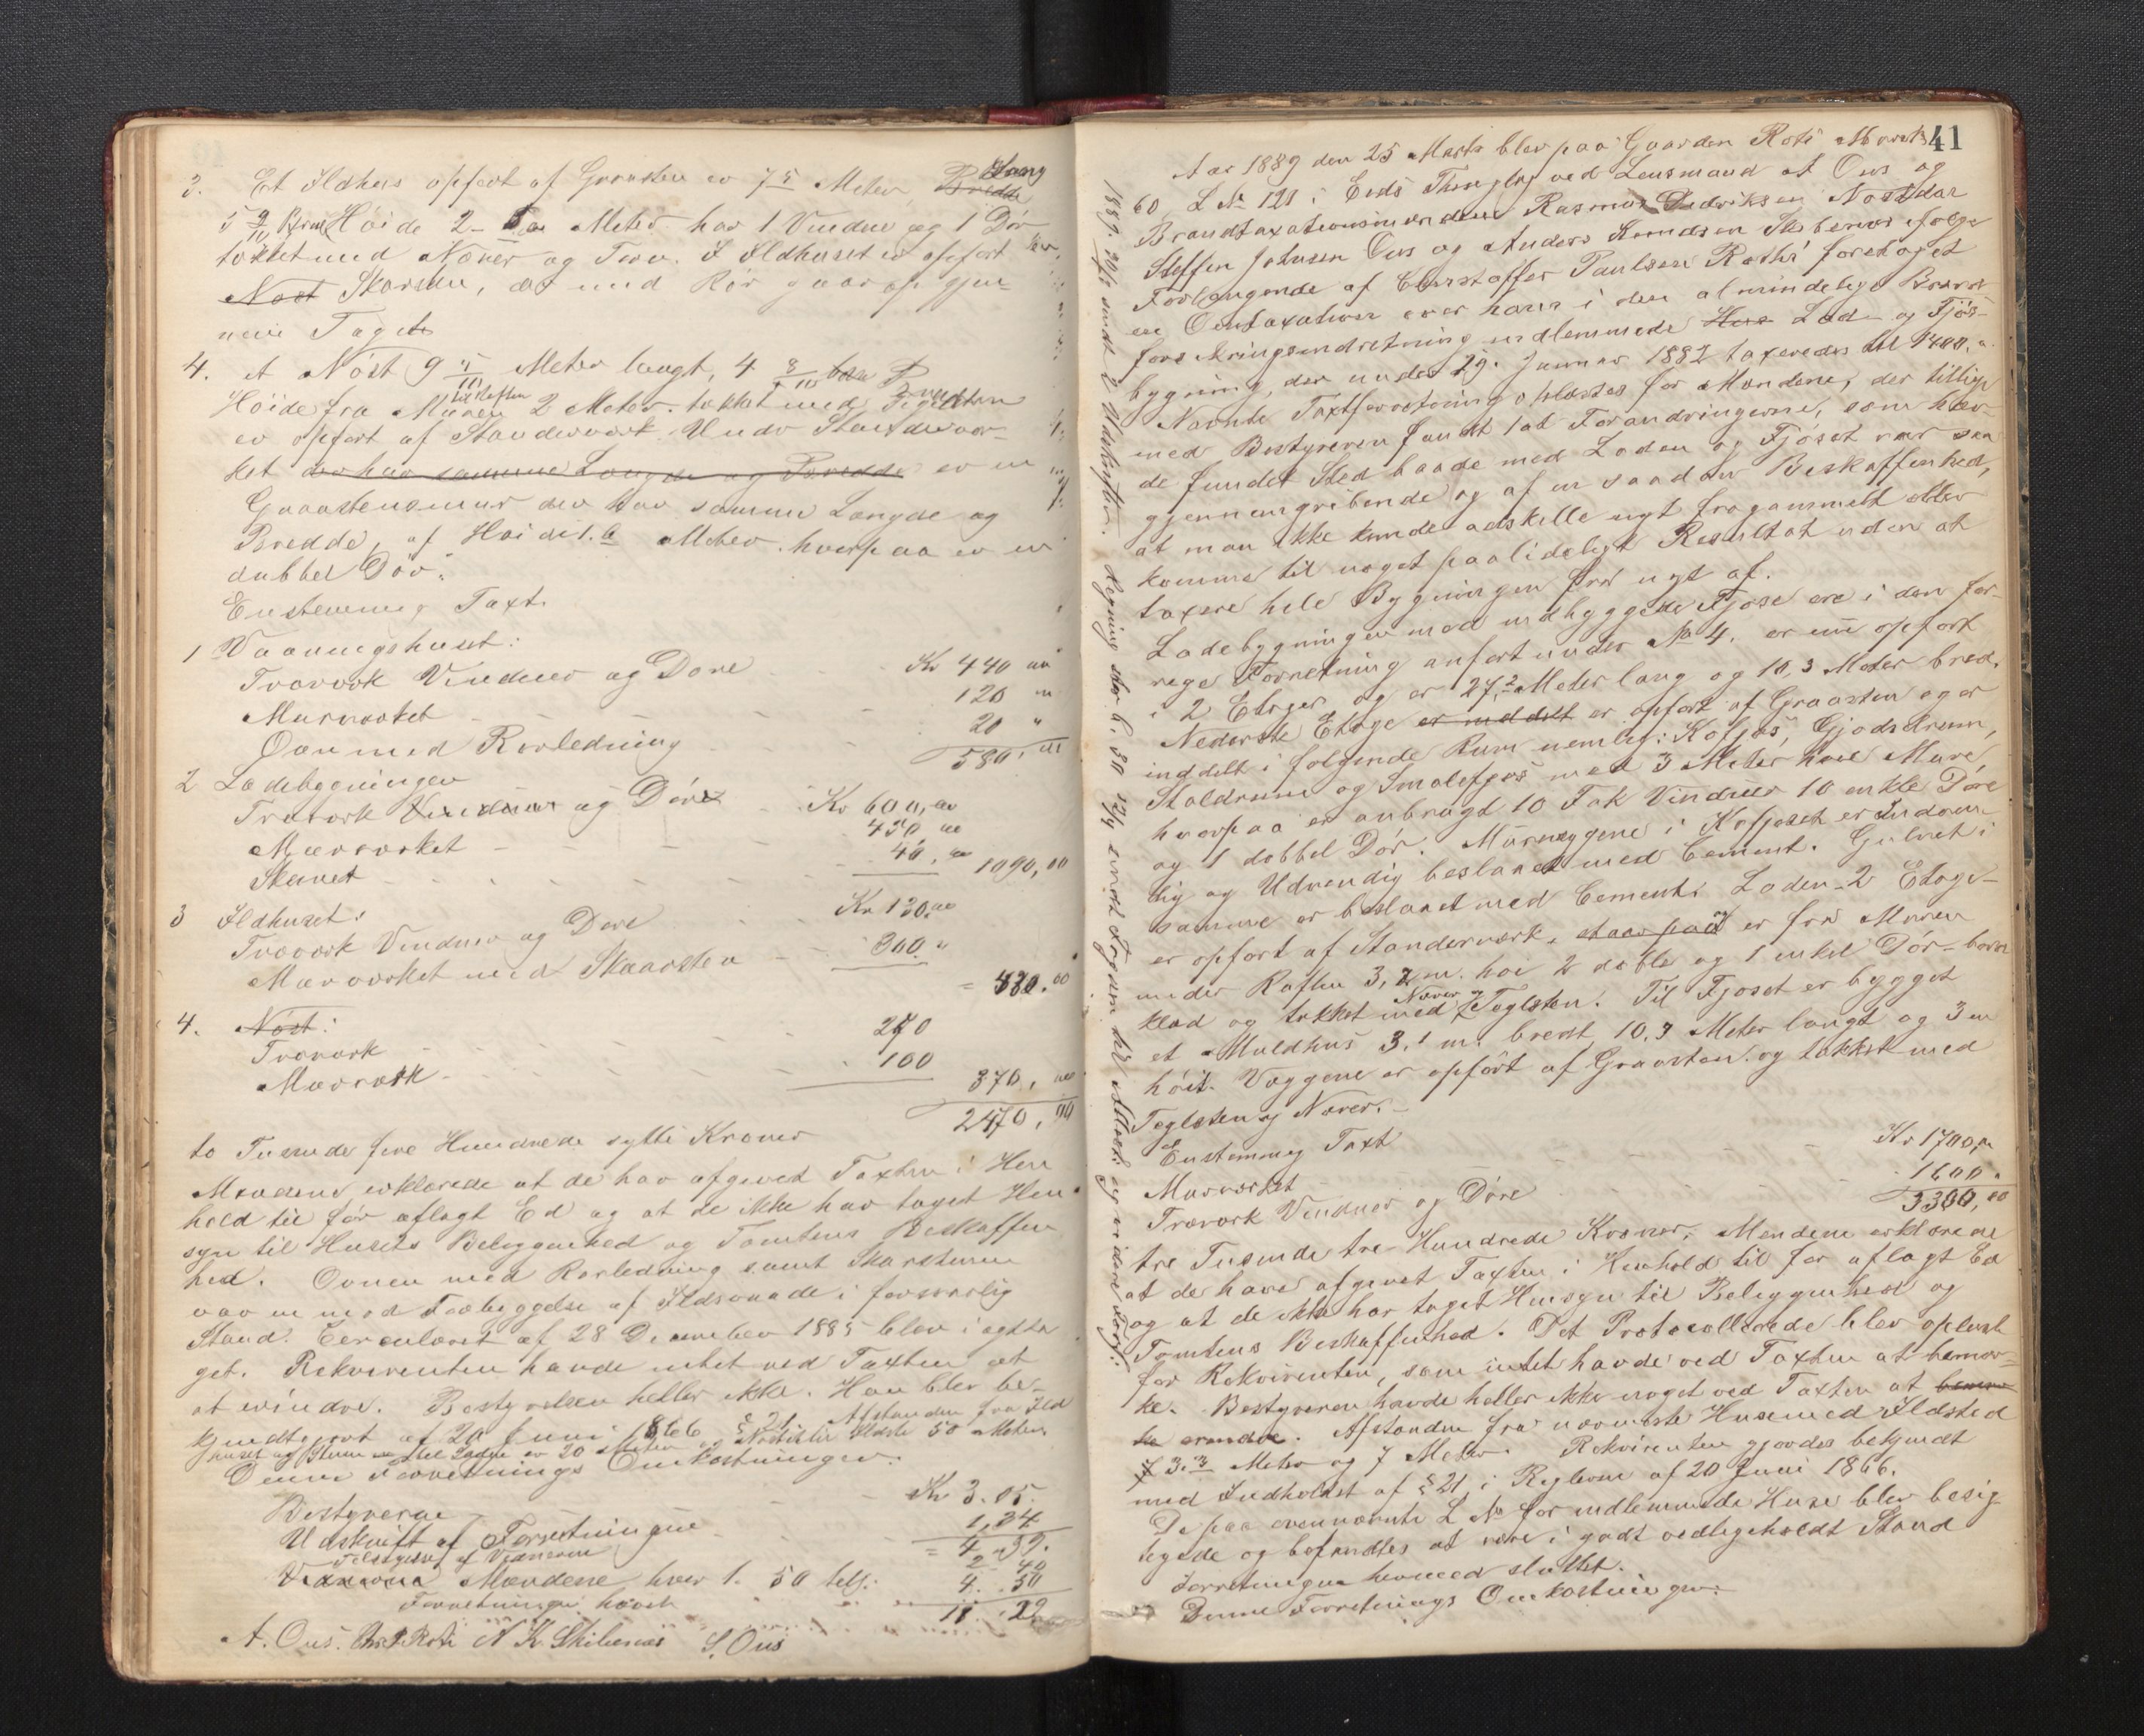 3. Et Ildhus opført af Graasten er 7 5 Meter Lang
5 9/10 Bred Höide 2 Meter har 1 Vindue og 1 Dör
tækket med Næver og Torv. I Ildhuset er opført
Skorsten, der med Rör gaar op gjen-
nem Taget
4. et Nöst 9 5/10 Meter langt, 4 8/10 Bredt
Höide fra Muren til Raften 2 Meter. tækket med Teglsten
er opført af Standerværk. Under Standervær-
ket der har samme Længde og Bredde er en
Graastensmur der har samme Længde og
Bredde, af Höide 1.6 Meter. hvorpaa er en
dubbel Dör.
Enstemmig Taxt.
1 Vaaningshuset:
Træværk Vinduer og Döre Kr 440 00
Murværket 120 "
Ovn med Rørledning 20 "
580, 00
2 Ladebygningen
Træværk Vinduer og Döre Kr 600,00
Murværket 450,00
Skuret 40,00 1090,00
3 Ildhuset:
Træværk Vinduer og Döre Kr 130,00
Murværket med Skaarsten 300 "
= 430.00
4. Nøst:
Træværk 270
Murværk 100
370, 00
2470, 00
to Tusinde fire Hundrede sytti Kroner
Mændene erklærede at de har afgivet Taxten i Hen
hold til før aflagt Ed og at de ikke har taget Hen
syn til Husets Beliggenhed og Tomtens Beskaffen
hed. Ovnen med Rørledning samt Skorstenen
var en mod Forebyggelse af Ildsvaade i forsvarlig
Stand. Cerculæret af 28 December 1885 blev iagtta
get. Rekvirenten havde intet ved Taxten at
at erindre. Bestyrelsen heller ikke. Han blev be-
kjendtgjort af 20 Juni 1866 § 21. Afstanden fra Ild
huset og Stuen til Laden er 20 Meter Nöstet til Ildsted 50 Meter.
Denne Forretnings Omkostninger:
Bestyreren Kr 3.05.
Udskrift af Forretningen 1,34
= 4,39.
Tilsigelse af Mændene 2 40
Mændene hver 1. 50 tils. 4. 50
Forretningen hævet 11. 29
A. Ous. Chr. P. Roti A K. Skibenes S. Ous
41
Aar 1889 den 25 Marts blev paa Gaarden Roti Marti
60 L No 121 i Eids Thinglag ved Lensmand A Ous og
Brandtaxationsmændene Rasmus Hendriksen Nosdal
Steffen Johnsen Ous og Anders Knudsen Skibenes efter
Forlangende af Christoffer Paulsen Rothi foretaget
en Omtaxation over hans i den almindelige Brand
forsikringsindretning indlemmede Hus Lad- og Fjös-
bygning, der under 19. Januar 1882 taxeredes til 1400.00
Nævnte Taxtforretning oplæstes for Mændene, der tillige
med Bestyreren fandt, at Forandringerne, som hav-
de fundet Sted baade med Laden og Fjöset var saa
gjennemgribende og af en saadan Beskaffenhed,
at man ikke kunde adskille nyt fra gammelt eller
komme til noget paalideligt Resultat uden at
taxere hele Bygningen fra nyt af.
Ladebygningen med indbyggede Fjøse er i den for-
rige Forretning anført under No 4. er nu opfört
i 2 Etager og er 27,2 Meter lang og 10,3 Meter bred.
Nederste Etage er inddelt er opført af Graasten og er
inddelt i følgende Rum nemlig: Kofjøs, Gjødselrum,
Staldrum og Smalefjøs med 3 Meter høie Mure,
hvorpaa er anbragt 10 Fak Vinduer 10 enkle Döre
og 1 dobbel Dör. Murvæggene i Kofjøset er Indven-
dig og Udvendig beslaaet med Cement. Gulvet i
samme er beslaaet med Cement. Laden - 2 Etage -
er opført af Standerværk, er fra Muren
under Raften 3,2 m. høi 2 doble og 1 enkel Dör - bord
klæd og tækket med Næver og Teglsten. Til Fjøset er bygget
et Muldhus 3.1 m. bredt, 10.3 Meter langt og 3 m
høit. Væggene er opfört af Graasten og tækket med
Teglsten og Næver.
Enstemmig Taxt
Murværket Kr 1700,00
Træværk Vinduer og Döre 1600 "
3300,00
tre Tusinde tre Hundrede Kroner. Mændene erklærede
at de have afgivet Taxten i Henhold til før aflagt Ed
og at de ikke har taget Hensyn til Beliggenhed og
Tomtens Beskaffenhed. Det Protocollerede blev oplæst
for Rekvirenten, som intet havde ved Taxten at bemær-
ke. Bestyreren havde heller ikke noget ved Taxten at
erindre. Afstanden fra nærmeste Huse med Ildsted
3.3 Meter og 7 Meter. Rekvirenten gjordes bekjendt
med Indholdet af § 21 i Reglerne af 20 Juni 1866.
De paa ovennævnte L No før indlemmede Huse blev besig-
tigede og befandtes at være i godt vedligeholdt Stand
Forretningen hermed sluttet.
Denne Forretnings Omkostninger: